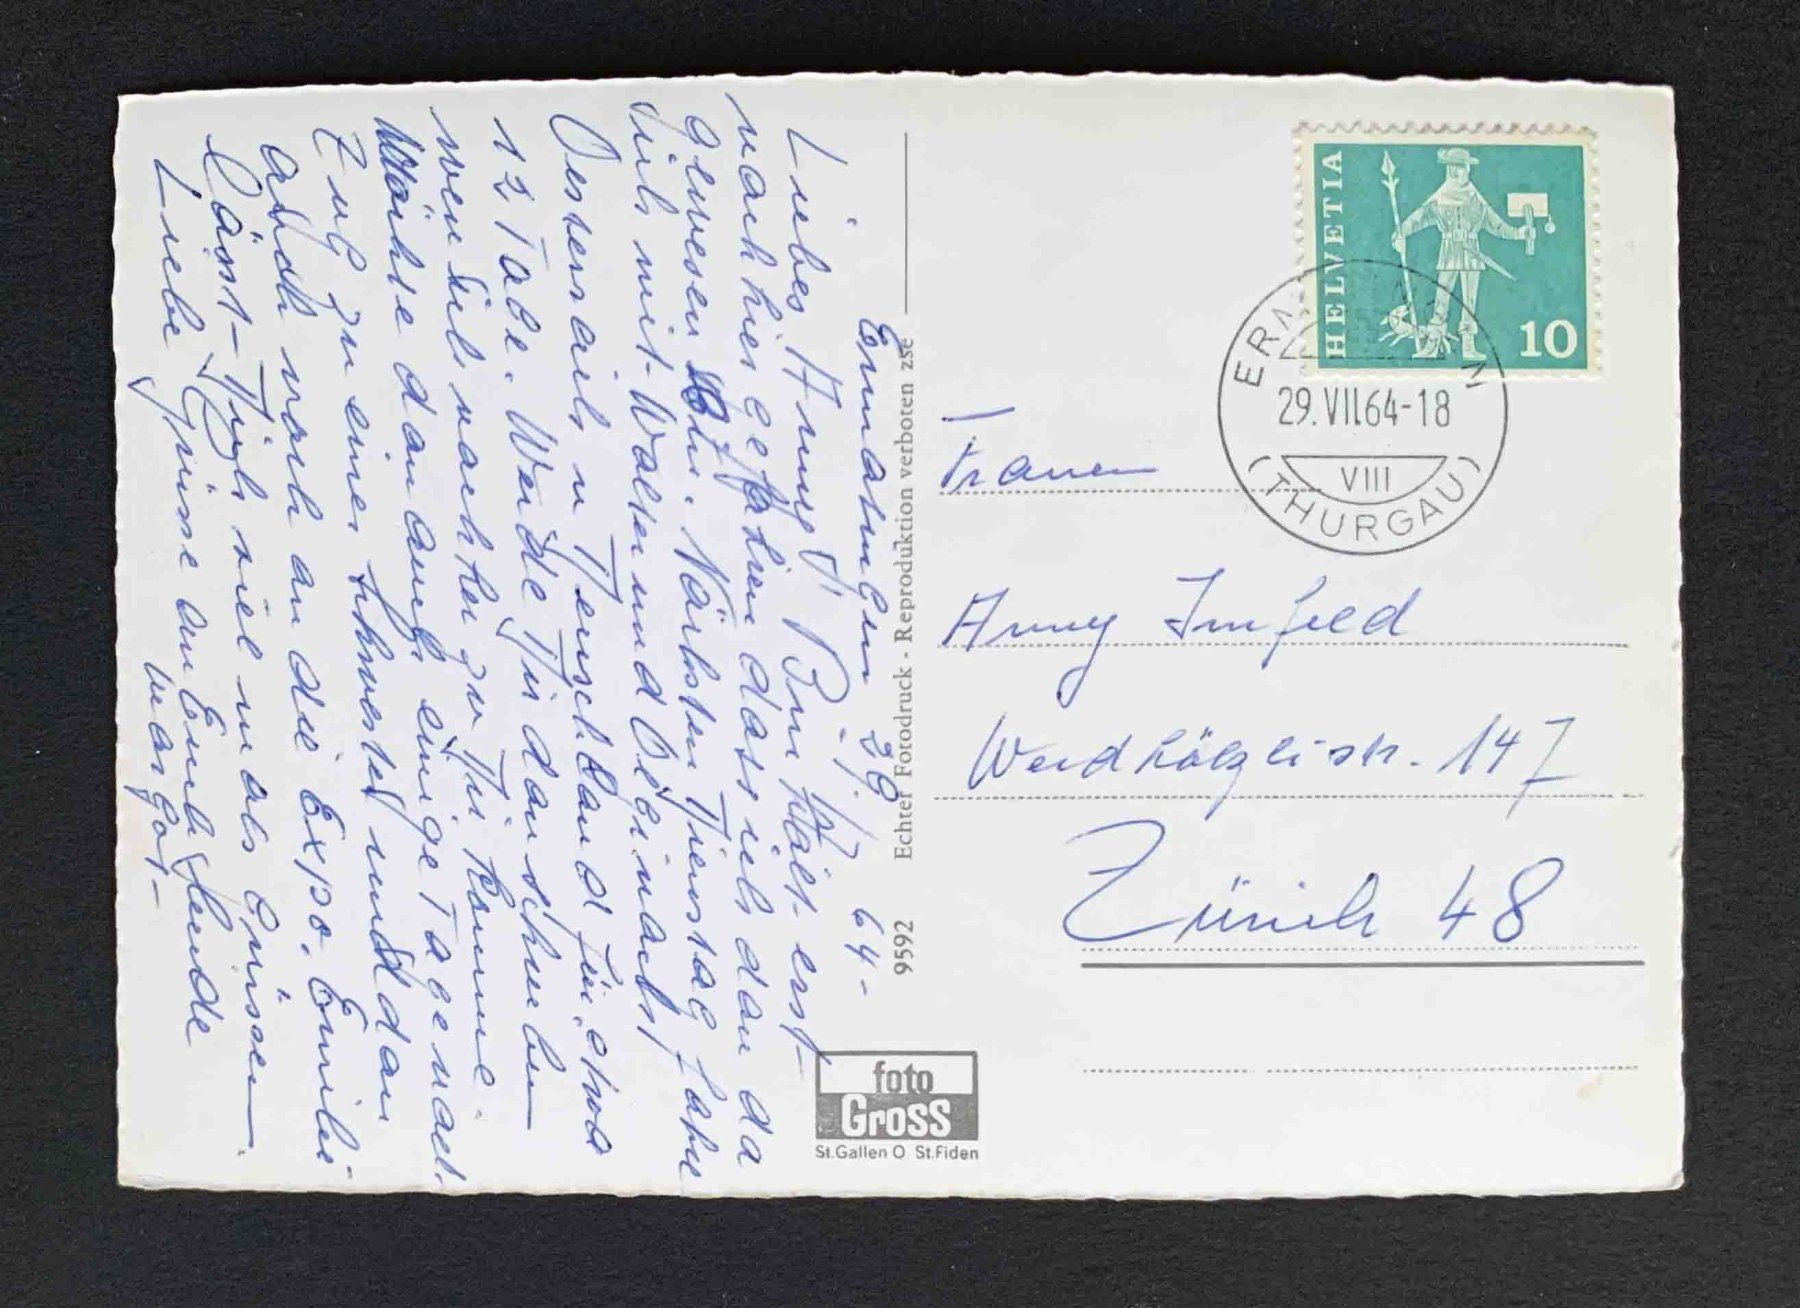 Ermatingen 29./7. 64-
Liebes Anny! Bin halt erst
nach hier gefahren dass ich dan da
gewesen bin. Nächsten Tienstag fahre
ich mit Walter und
Oesterreich u Teuschland für etwa
12 Tage. Werde Tir dan schreiben
wen ich nachher zu Tir komme.
Möchte dan auch einige Tage nach
Zug zu einer Schwester und dan
auch noch an die Expo. Emilie
lässt Tich viel mals grüssen.
Liebe Grüsse an Euch beide
Margot-
9592 Echter Fotodruck - Reproduktion verboten zse
foto
Gross
St.Gallen O St.Fiden
HELVETIA
10
29.VII.64-18
VIII
(THURGAU)
Frauen
Anny Imfeld
Werdhölzlistr. 147
Zürich 48